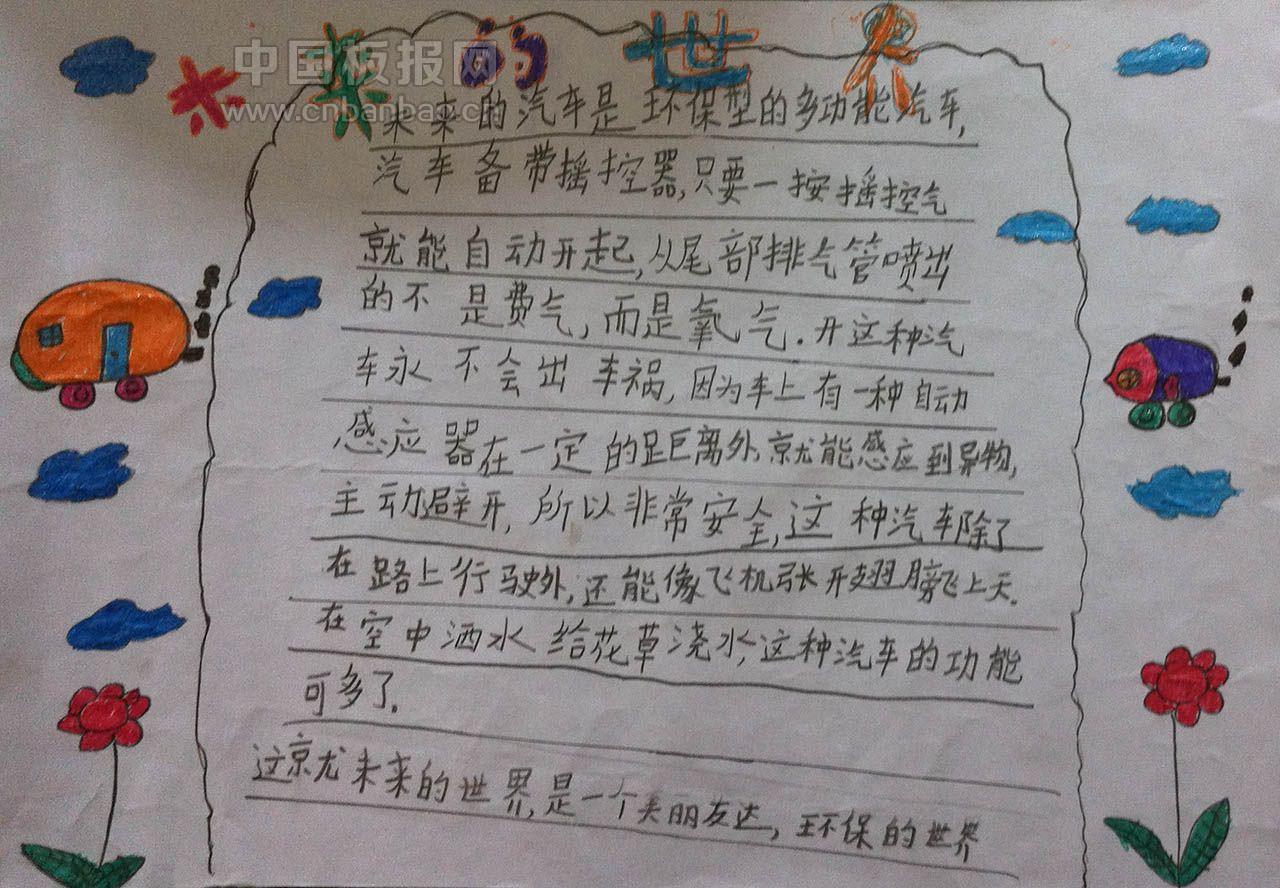 未来的世界
中国板报网
www.cnbanbao.c
未来的汽车是环保型的多功能汽车,
汽车备带摇控器,只要一按摇控气
就能自动开起,从尾部排气管喷出
的不是费气,而是氧气.开这种汽
车永不会出车祸,因为车上有一种自动
感应器在一定的距离外,就能感应到异物,
主动避开,所以非常安全,这种汽车除了
在路上行驶外,还能像飞机张开翅膀飞上天.
在空中洒水给花草浇水,这种汽车的功能
可多了.
这就未来的世界,是一个美丽友达,环保的世界